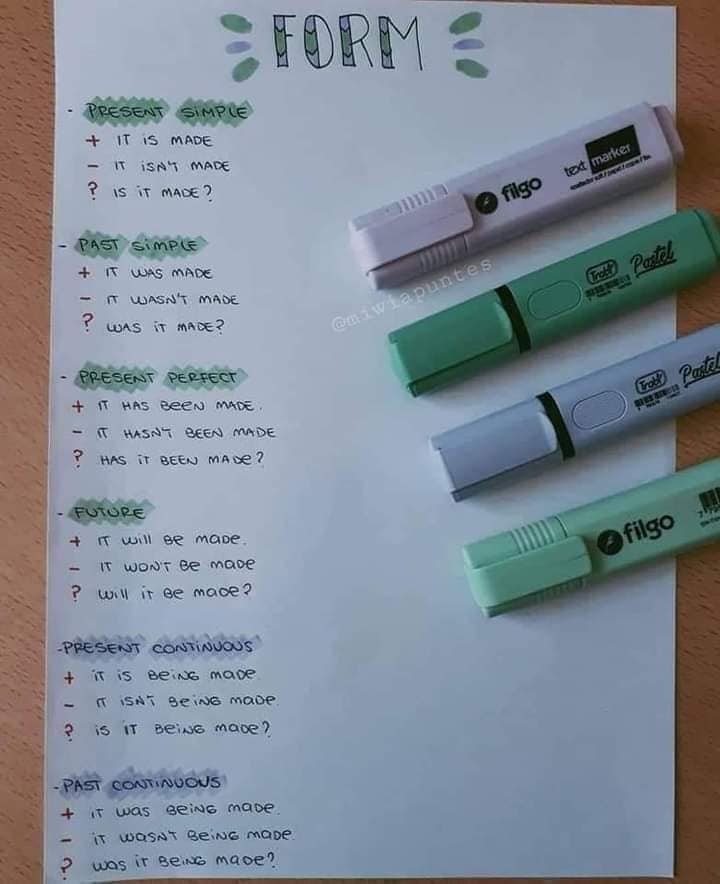 FORM
- PRESENT SIMPLE
+ IT IS MADE
- IT ISN'T MADE
? IS IT MADE?
- PAST SIMPLE
+ IT WAS MADE
- IT WASN'T MADE
? WAS IT MADE?
- PRESENT PERFECT
+ IT HAS BEEN MADE.
- IT HASN'T BEEN MADE
? HAS IT BEEN MADE?
- FUTURE
+ IT WILL BE MADE.
- IT WON'T BE MADE
? WILL IT BE MADE?
- PRESENT CONTINUOUS
+ IT IS BEING MADE.
- IT ISN'T BEING MADE.
? IS IT BEING MADE?
- PAST CONTINUOUS
+ IT WAS BEING MADE.
- IT WASN'T BEING MADE.
? WAS IT BEING MADE?
filgo text marker
@miwiapuntes
Trabi Pastel
Trabi Pastel
filgo